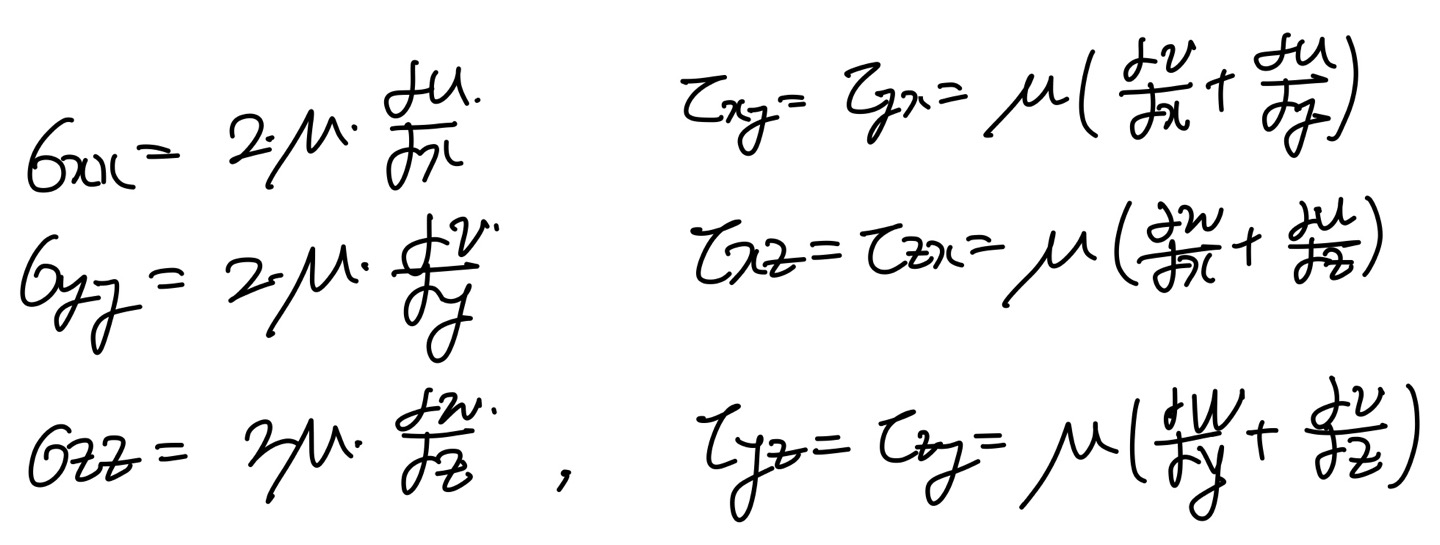 σxx = 2·μ· ∂u/∂x    τxy = τyx = μ(∂v/∂x + ∂u/∂y)
σyy = 2·μ· ∂v/∂y    τxz = τzx = μ(∂w/∂x + ∂u/∂z)
σzz = 2μ· ∂w/∂z ,    τyz = τzy = μ(∂w/∂y + ∂v/∂z)